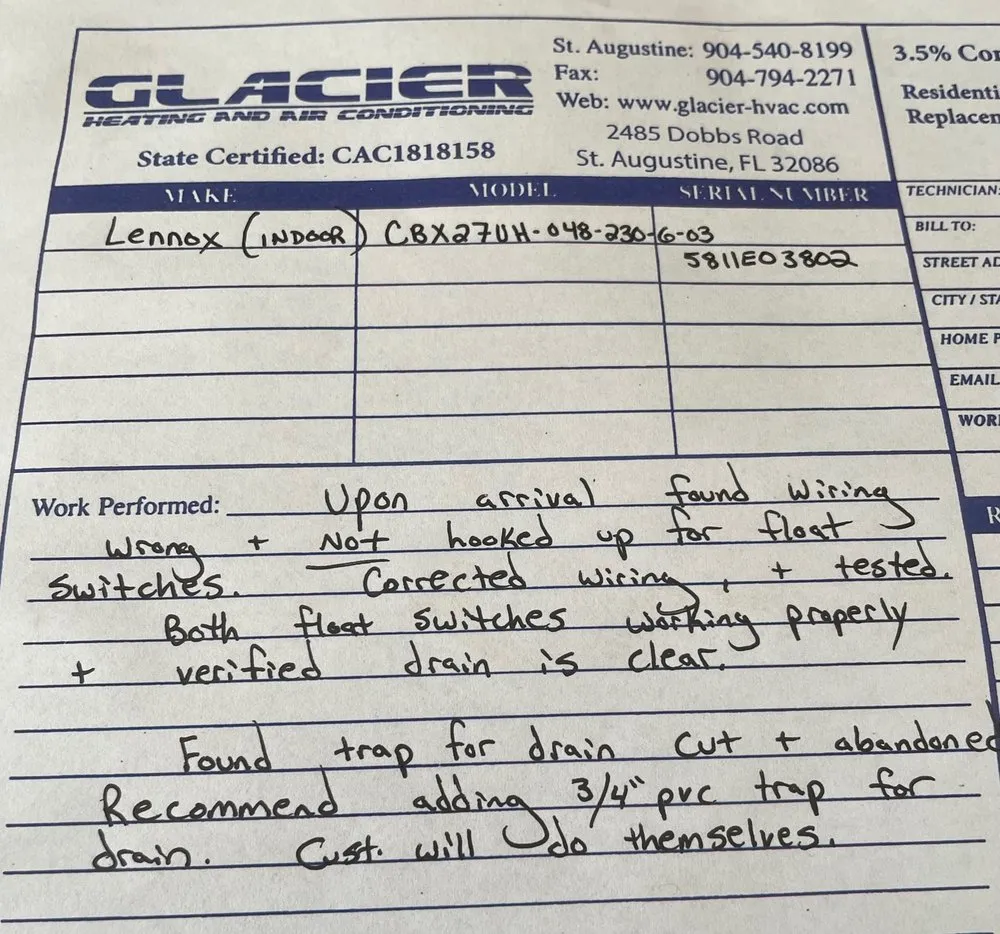 GLACIER
HEATING AND AIR CONDITIONING
State Certified: CAC1818158
St. Augustine: 904-540-8199
Fax: 904-794-2271
Web: www.glacier-hvac.com
2485 Dobbs Road
St. Augustine, FL 32086
3.5% Con
Residenti
Replacem
MAKE MODEL SERIAL NUMBER
Lennox (INDOOR) CBX27UH-048-230-6-03
5811E03802
TECHNICIAN:
BILL TO:
STREET AD
CITY / STA
HOME P
EMAIL
WOR
R
Work Performed: Upon arrival found wiring
wrong + Not hooked up for float
switches. Corrected wiring, + tested.
Both float switches working properly
+ verified drain is clear.
Found trap for drain cut + abandoned
Recommend adding 3/4" pvc trap for
drain. Cust. will do themselves.